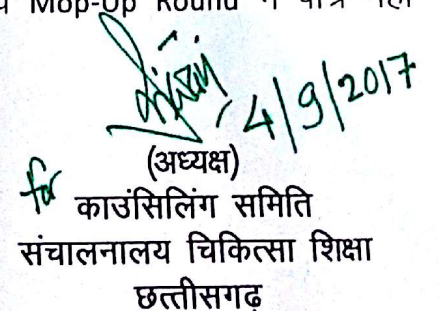 Mop-Up Round में पात्र नहीं
4/9/2017
(अध्यक्ष)
for काउंसिलिंग समिति
संचालनालय चिकित्सा शिक्षा
छत्तीसगढ़